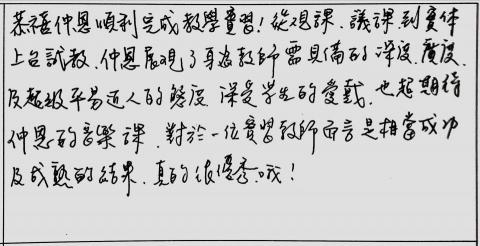 恭禧仲恩順利完成教學實習！從觀課、議課到實体
上台試教，仲恩展現了身為教師需具備的深度、廣度、
及超級平易近人的態度，深受學生的愛戴，也超期待
仲恩的音樂課，對於一位實習教師而言是相當成功
及成熟的結果，真的很優秀哦！